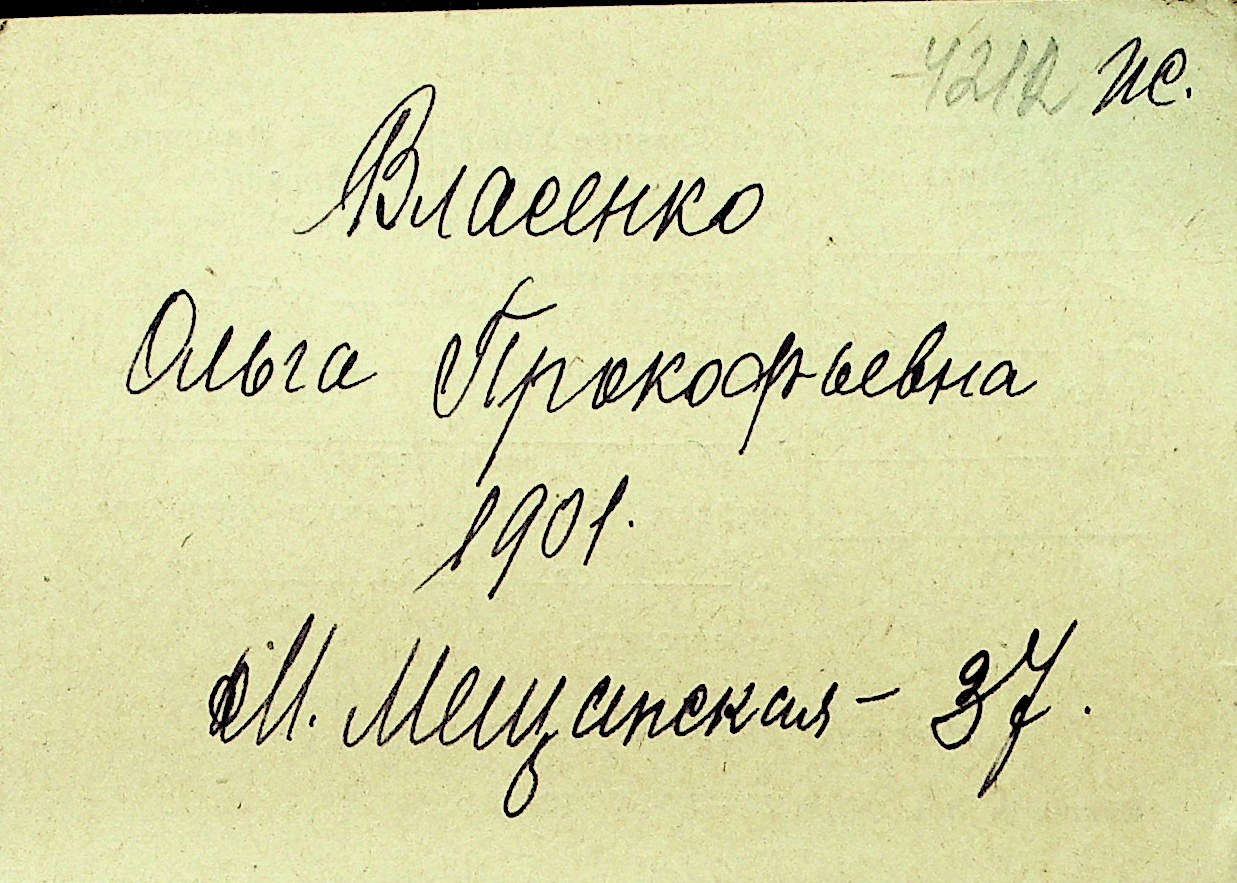 4212 ж.
Власенко
Ольга Прокофьевна
1901.
М. Мещанская – 37.